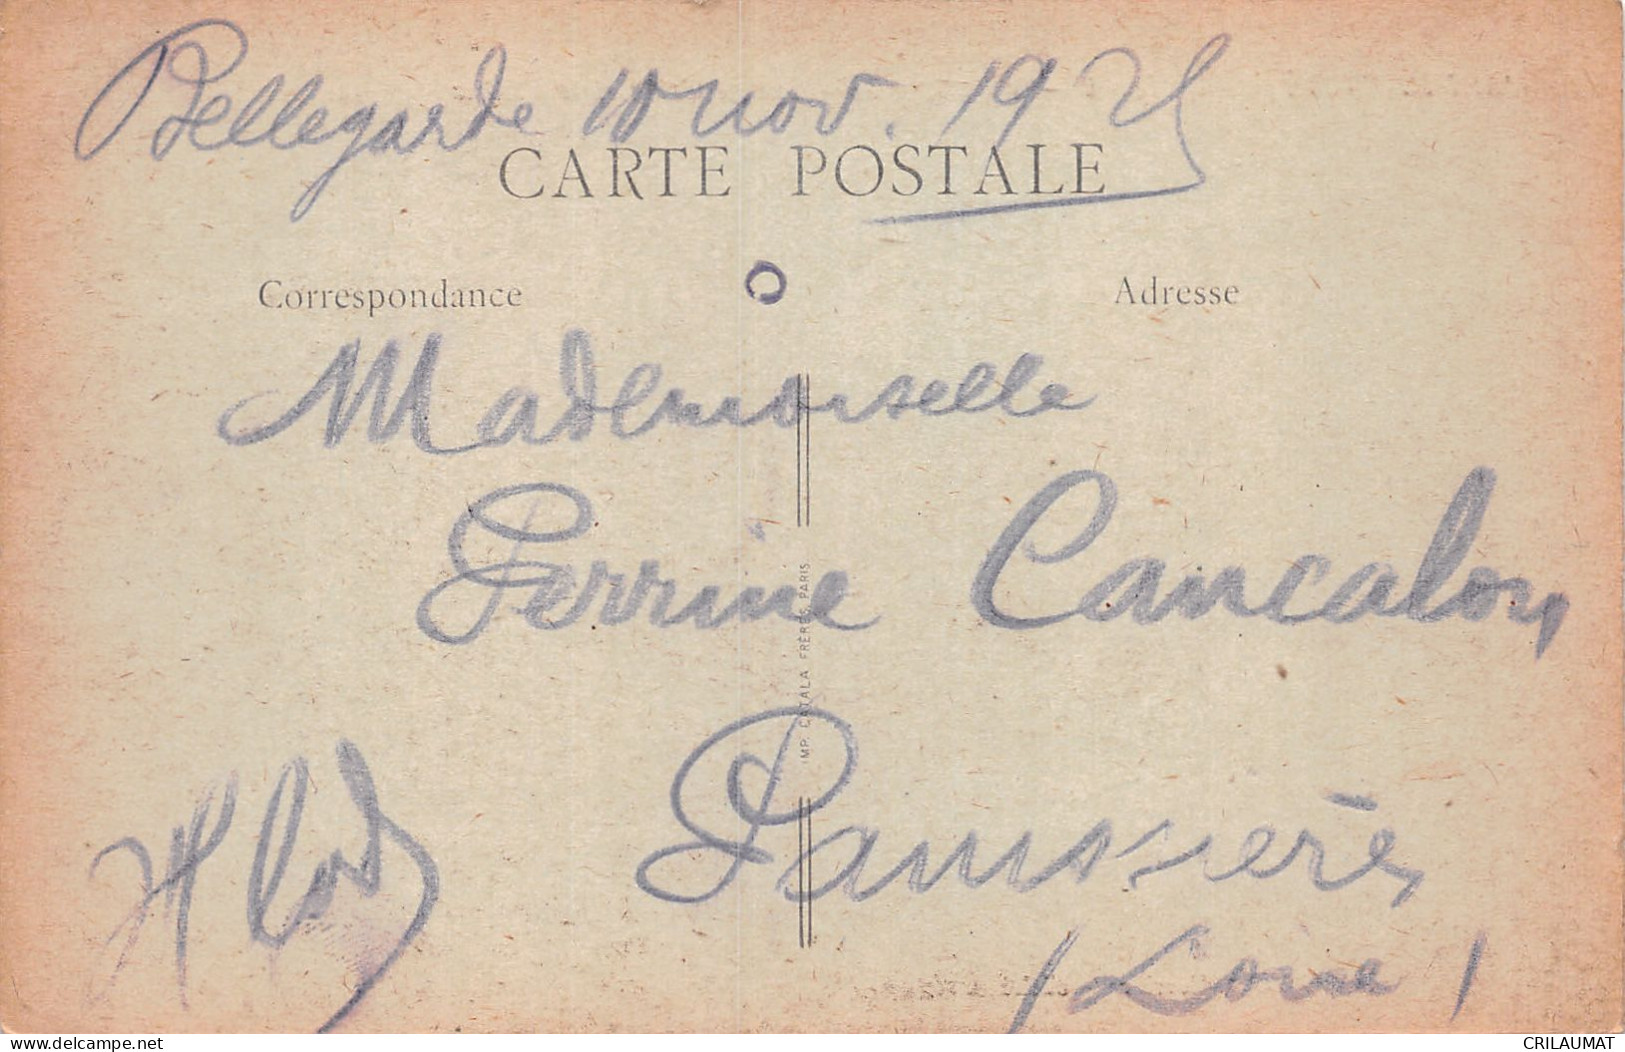 Bellegarde 10 nov. 19
CARTE POSTALE
Correspondance
Adresse
Mademoiselle
Perrine Cancalon
IMP. CATALA FRÈRES PARIS
Panissières
(Loire)
delcampe.net
CRILAUMAT